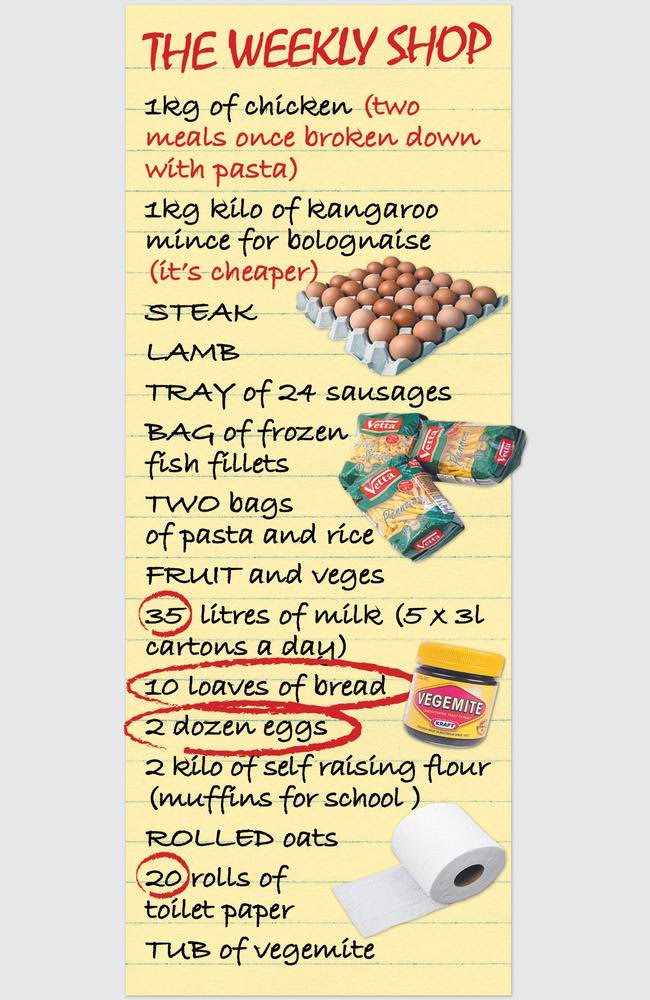 THE WEEKLY SHOP
1kg of chicken (two
meals once broken down
with pasta)
1kg kilo of kangaroo
mince for bolognaise
(it's cheaper)
STEAK
LAMB
TRAY of 24 sausages
BAG of frozen
fish fillets
TWO bags
of pasta and rice
FRUIT and veges
35 litres of milk (5 x 3l
cartons a day)
10 loaves of bread
2 dozen eggs
2 kilo of self raising flour
(muffins for school )
ROLLED oats
20 rolls of
toilet paper
TUB of vegemite
Vetta
Vetta
Vetta
Vetta
VEGEMITE
KRAFT